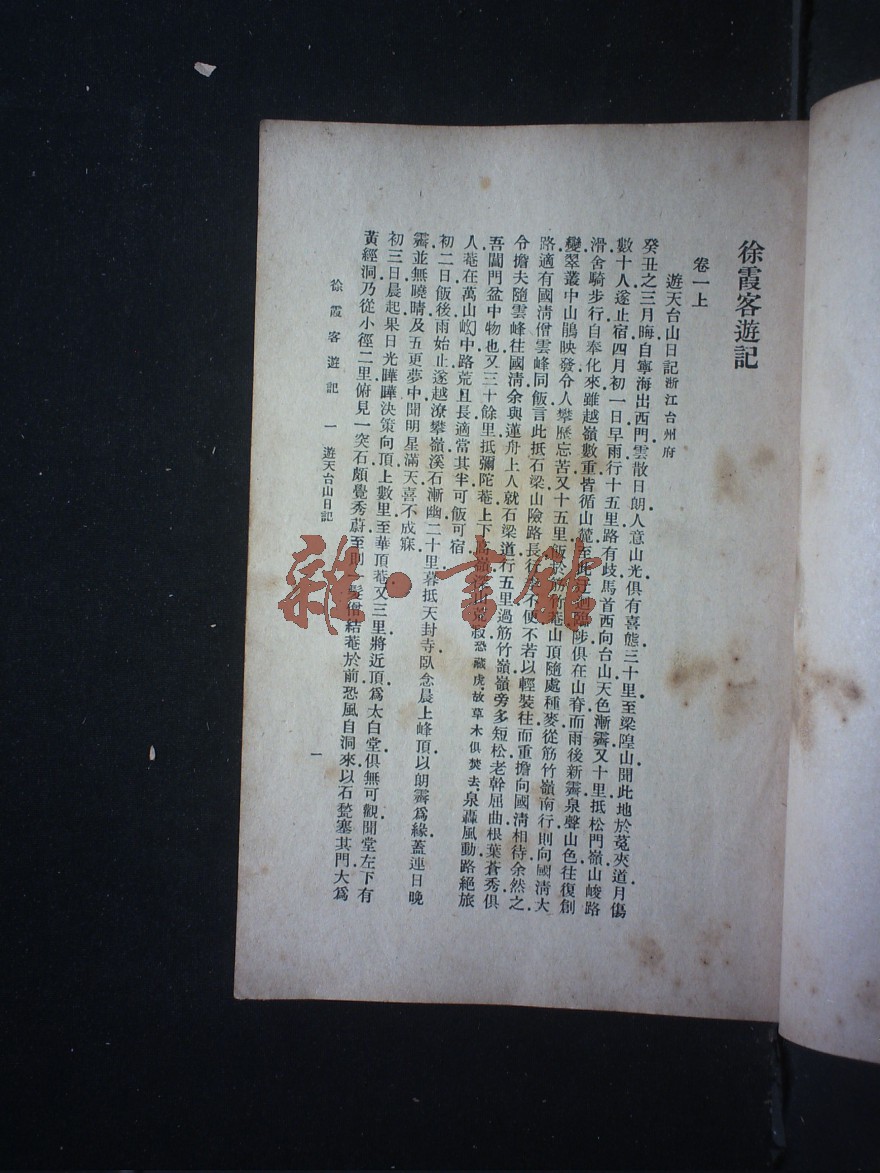 徐霞客遊記
卷一上
遊天台山日記浙江台州府
癸丑之三月晦自寧海出西門雲散日朗人意山光俱有喜態三十里至梁隍山聞此地於菟夾道月傷
數十人遂止宿四月初一日早雨行十五里路有歧馬首西向台山天色漸霽又十里抵松門嶺山峻路
滑舍騎步行自奉化來雖越嶺數重皆循山麓至此迂迴臨陟俱在山脊而雨後新霽泉聲山色往復創
變翠叢中山鵑映發令人攀歷忘苦又十五里飯於筋竹菴山頂隨處種麥從筋竹嶺南行則向國清大
路適有國清僧雲峰同飯言此抵石梁山險路長行不便不若以輕裝往而重擔向國清相待余然之
令擔夫隨雲峰往國清余與蓮舟上人就石梁道行五里過筋竹嶺嶺旁多短松老幹屈曲根葉蒼秀俱
吾閶門盆中物也又三十餘里抵彌陀菴上下高嶺深山荒寂恐藏虎故草木俱焚去泉轟風動路絕旅
人菴在萬山㘭中路荒且長適當其半可飯可宿
初二日飯後雨始止遂越潦攀嶺溪石漸幽二十里暮抵天封寺臥念晨上峰頂以朗霽爲緣蓋連日晚
霽並無曉晴及五更夢中聞明星滿天喜不成寐
初三日晨起果日光曄曄決策向頂上數里至華頂菴又三里將近頂爲太白堂俱無可觀聞堂左下有
黃經洞乃從小徑二里俯見一突石頗覺秀蔚至則髮僧結菴於前恐風自洞來以石甃塞其門大爲
徐霞客遊記 一 遊天台山日記
一
雜·書館